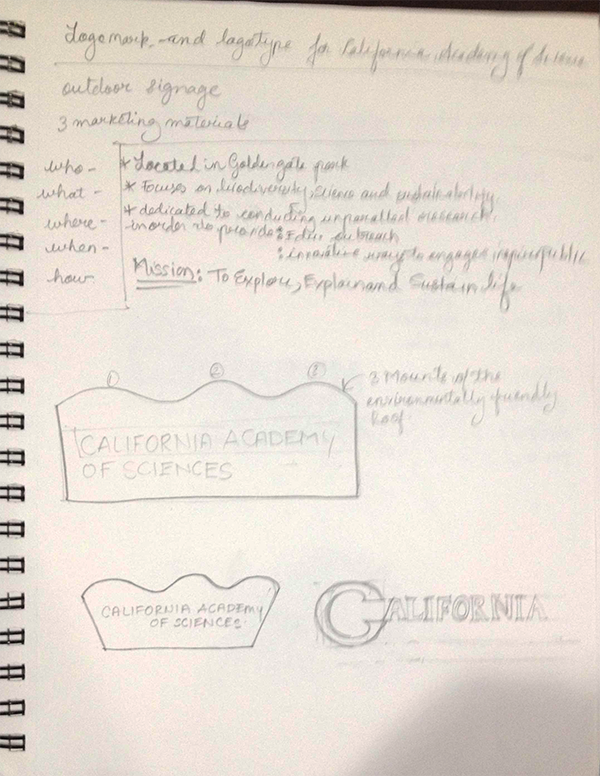 Logomark and logotype for California Academy of Science
outdoor signage
3 marketing materials
who -
* Located in Goldengate park
what -
* Focuses on biodiversity, science and sustainability
where -
* dedicated to conducting unparalled research
in order to provide : Edu. outreach
when -
: innovative ways to engage & inspire public
how
Mission: To Explore, Explain and Sustain life
1 2 3
3 Mounts of the
environmentally friendly
Roof
CALIFORNIA ACADEMY
OF SCIENCES
CALIFORNIA ACADEMY
OF SCIENCES
CALIFORNIA